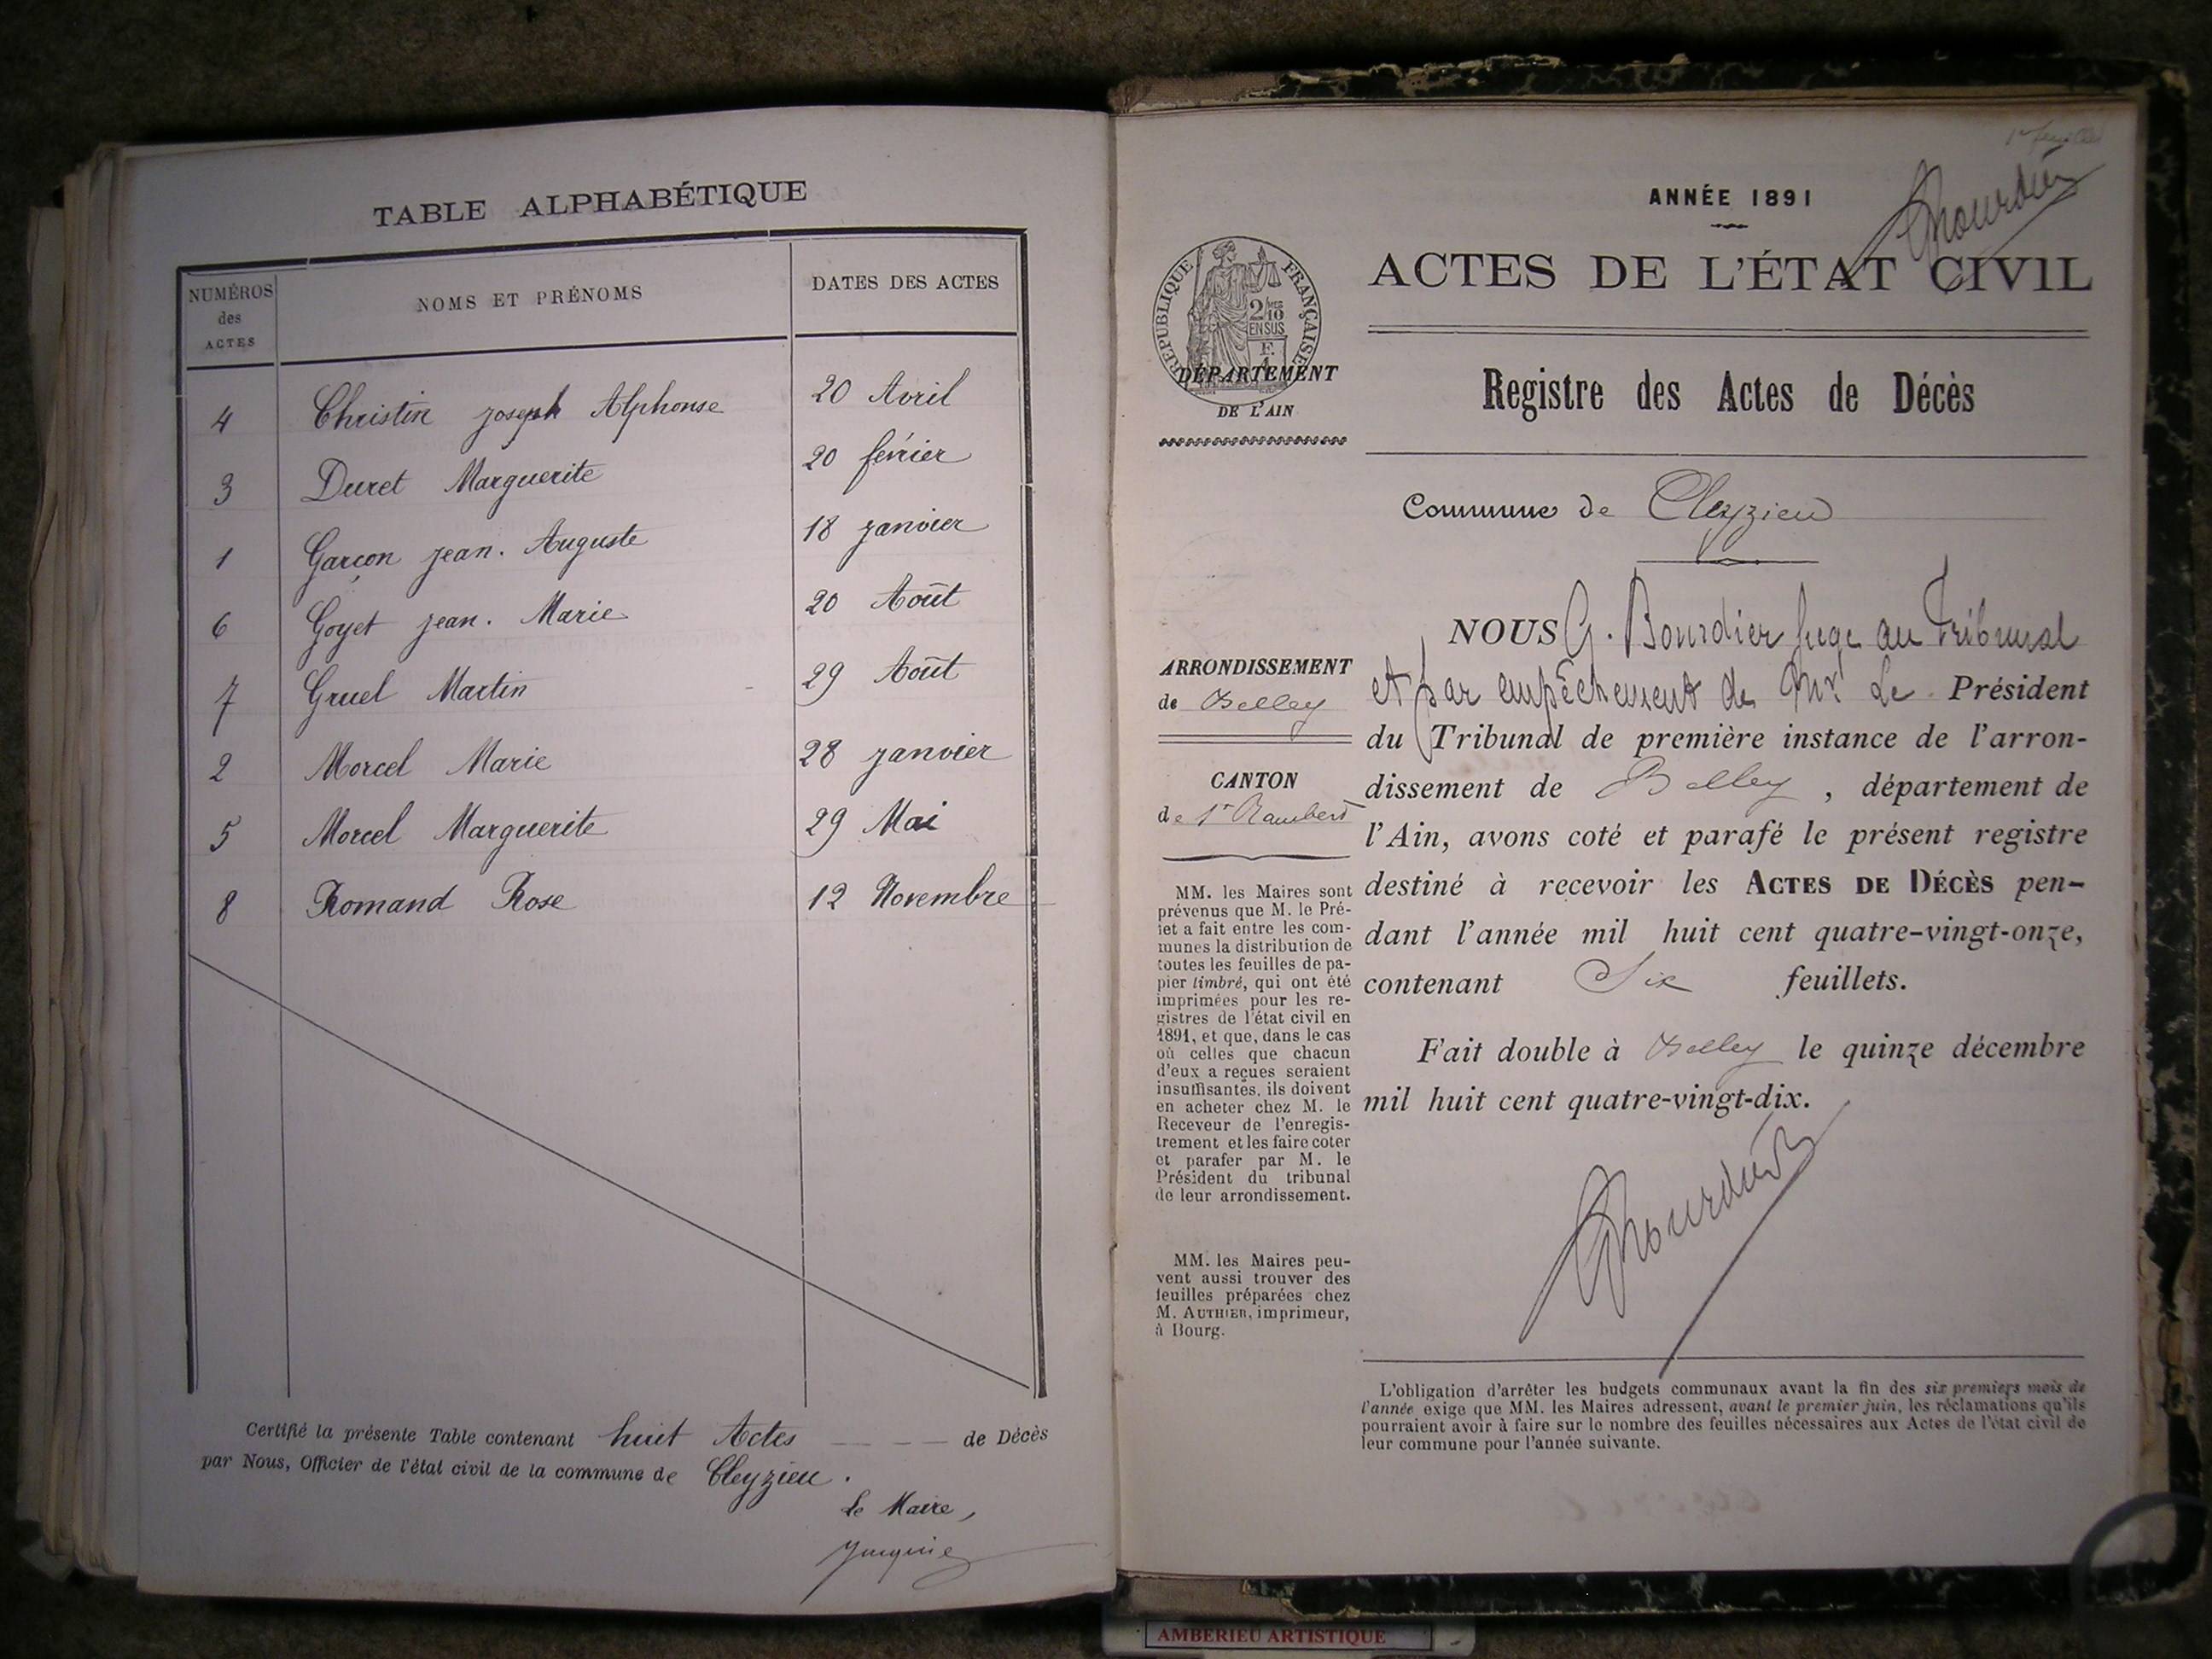 TABLE ALPHABÉTIQUE
NUMÉROS des ACTES
NOMS ET PRÉNOMS
DATES DES ACTES
4 Christin joseph Alphonse 20 Avril
3 Duret Marguerite 20 février
1 Garçon jean. Auguste 18 janvier
6 Goyet jean. Marie 20 Août
7 Gruel Martin 29 Août
2 Morcel Marie 28 janvier
5 Morcel Marguerite 29 Mai
8 Romand Rose 12 Novembre
Certifié la présente Table contenant huit Actes — — — de Décès
par Nous, Officier de l'état civil de la commune de Cleyzieu.
Le Maire,
1er feuillet
ANNÉE 1891
ACTES DE L'ÉTAT CIVIL
RÉPUBLIQUE FRANÇAISE
2/10
EN SUS
DÉPARTEMENT
DE L'AIN
Registre des Actes de Décès
Commune de Cleyzieu
ARRONDISSEMENT
de Belley
CANTON
de St Rambert
MM. les Maires sont
prévenus que M. le Pré-
fet a fait entre les com-
munes la distribution de
toutes les feuilles de pa-
pier timbré, qui ont été
imprimées pour les re-
gistres de l'état civil en
1891, et que, dans le cas
où celles que chacun
d'eux a reçues seraient
insuffisantes, ils doivent
en acheter chez M. le
Receveur de l'enregis-
trement et les faire coter
et parafer par M. le
Président du tribunal
de leur arrondissement.
MM. les Maires peu-
vent aussi trouver des
feuilles préparées chez
M. AUTHIER, imprimeur,
à Bourg.
NOUS G. Bourdier Juge au Tribunal
et par empêchement de Mr Le Président
du Tribunal de première instance de l'arron-
dissement de Belley, département de
l'Ain, avons coté et parafé le présent registre
destiné à recevoir les ACTES DE DÉCÈS pen-
dant l'année mil huit cent quatre-vingt-onze,
contenant Six feuillets.
Fait double à Belley le quinze décembre
mil huit cent quatre-vingt-dix.
GBourdier
L'obligation d'arrêter les budgets communaux avant la fin des six premiers mois de
l'année exige que MM. les Maires adressent, avant le premier juin, les réclamations qu'ils
pourraient avoir à faire sur le nombre des feuilles nécessaires aux Actes de l'état civil de
leur commune pour l'année suivante.
AMBERIEU ARTISTIQUE